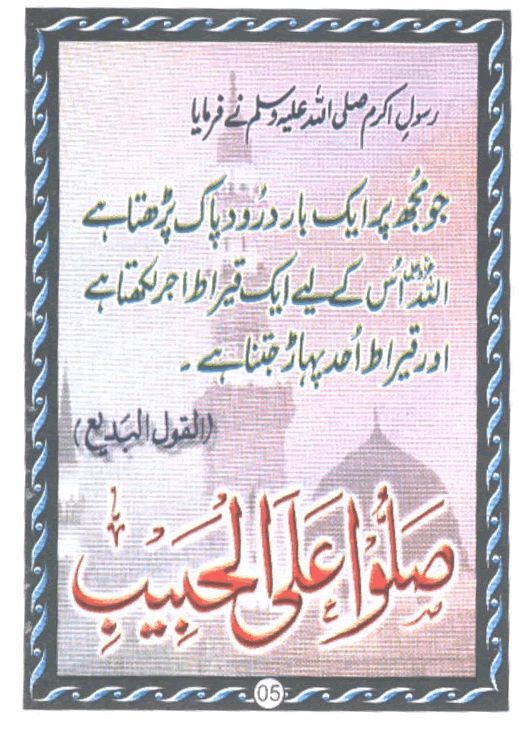 رسولِ اکرم صلی اللہ علیہ وسلم نے فرمایا
جو مُجھ پر ایک بار درُود پاک پڑھتا ہے
اللہ عزوجل اُس کے لیے ایک قیراط اجر لکھتا ہے
اور قیراط اُحد پہاڑ جتنا ہے ۔
(القول البَدیع)
صَلُّوْا عَلَی الْحَبِیْبِ
05